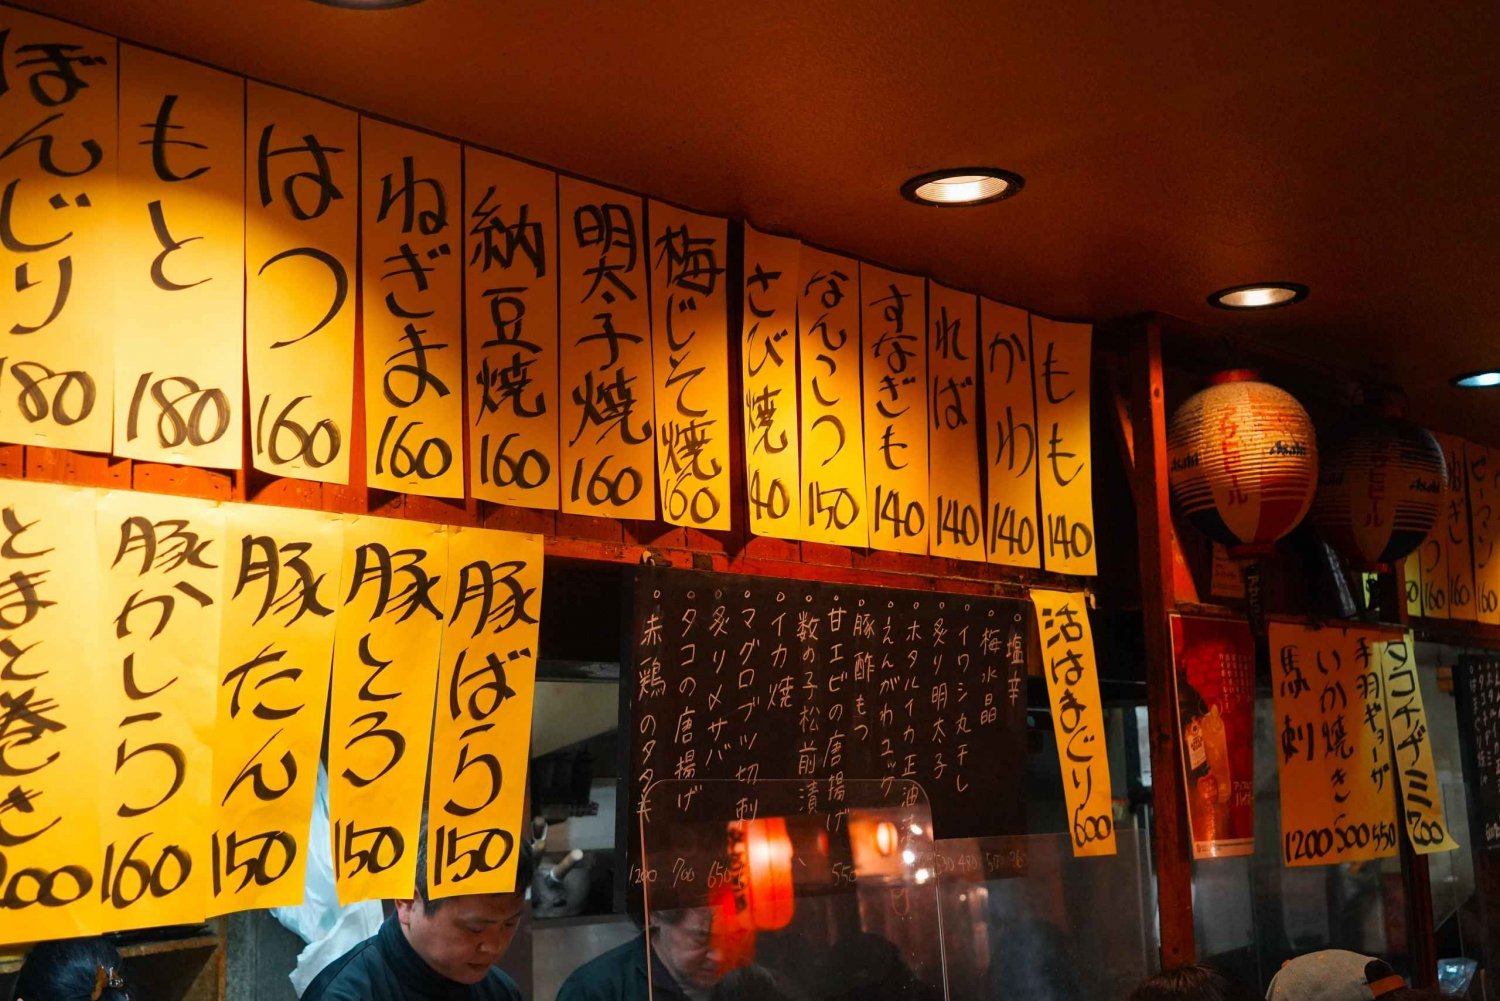 もも
140
かわ
140
ればー
140
すなぎも
140
なんこつ
150
さび焼
140
梅じそ焼
160
明太子焼
160
納豆焼
160
ねぎま
160
はつ
160
もと
180
ぼんじり
180
豚ばら
150
豚とろ
150
豚たん
150
豚かしら
160
とまと巻き
200
塩辛
梅水晶
イワシ丸干し
炙り明太子
ホタルイカ正油
えんがわユッケ
豚酢もつ
甘エビの唐揚げ
数の子松前漬
イカ焼
マグロブツ切刺
炙り〆サバ
タコの唐揚げ
赤鶏のタタキ
1200
700
650
550
活はまぐり
600
アサヒビール
Asahi
Asahi
タコチヂミ
700
手羽ギョーザ
550
いか焼き
500
馬刺
1200